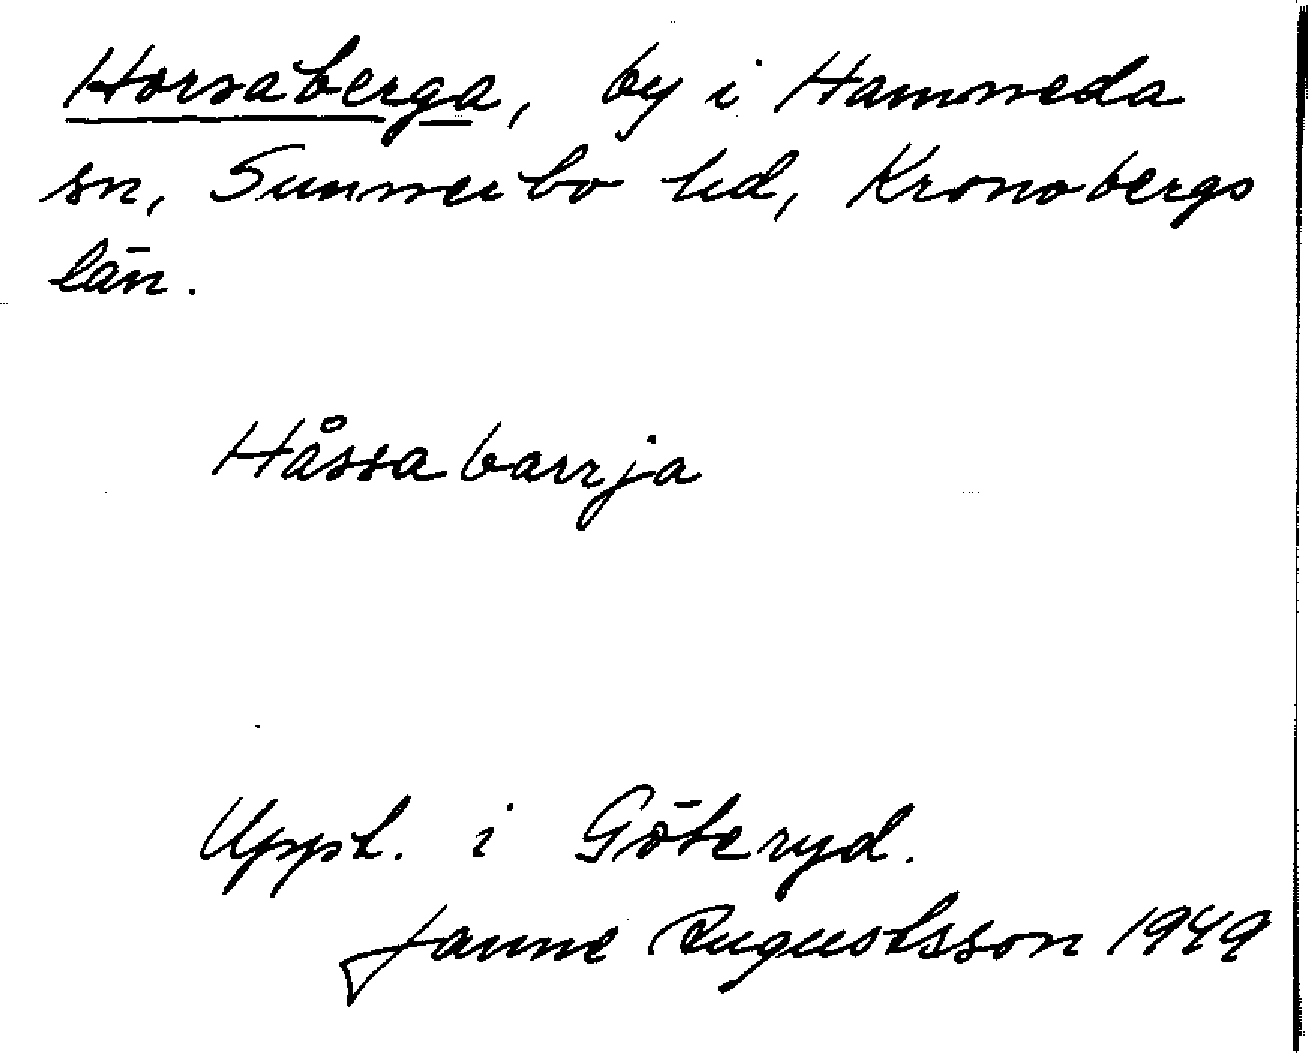 Horsaberga, by i Hamneda
sn, Sunnerbo hd, Kronobergs
län.
Håssabarrja
Uppt. i Göteryd.
Janne Augustsson 1949